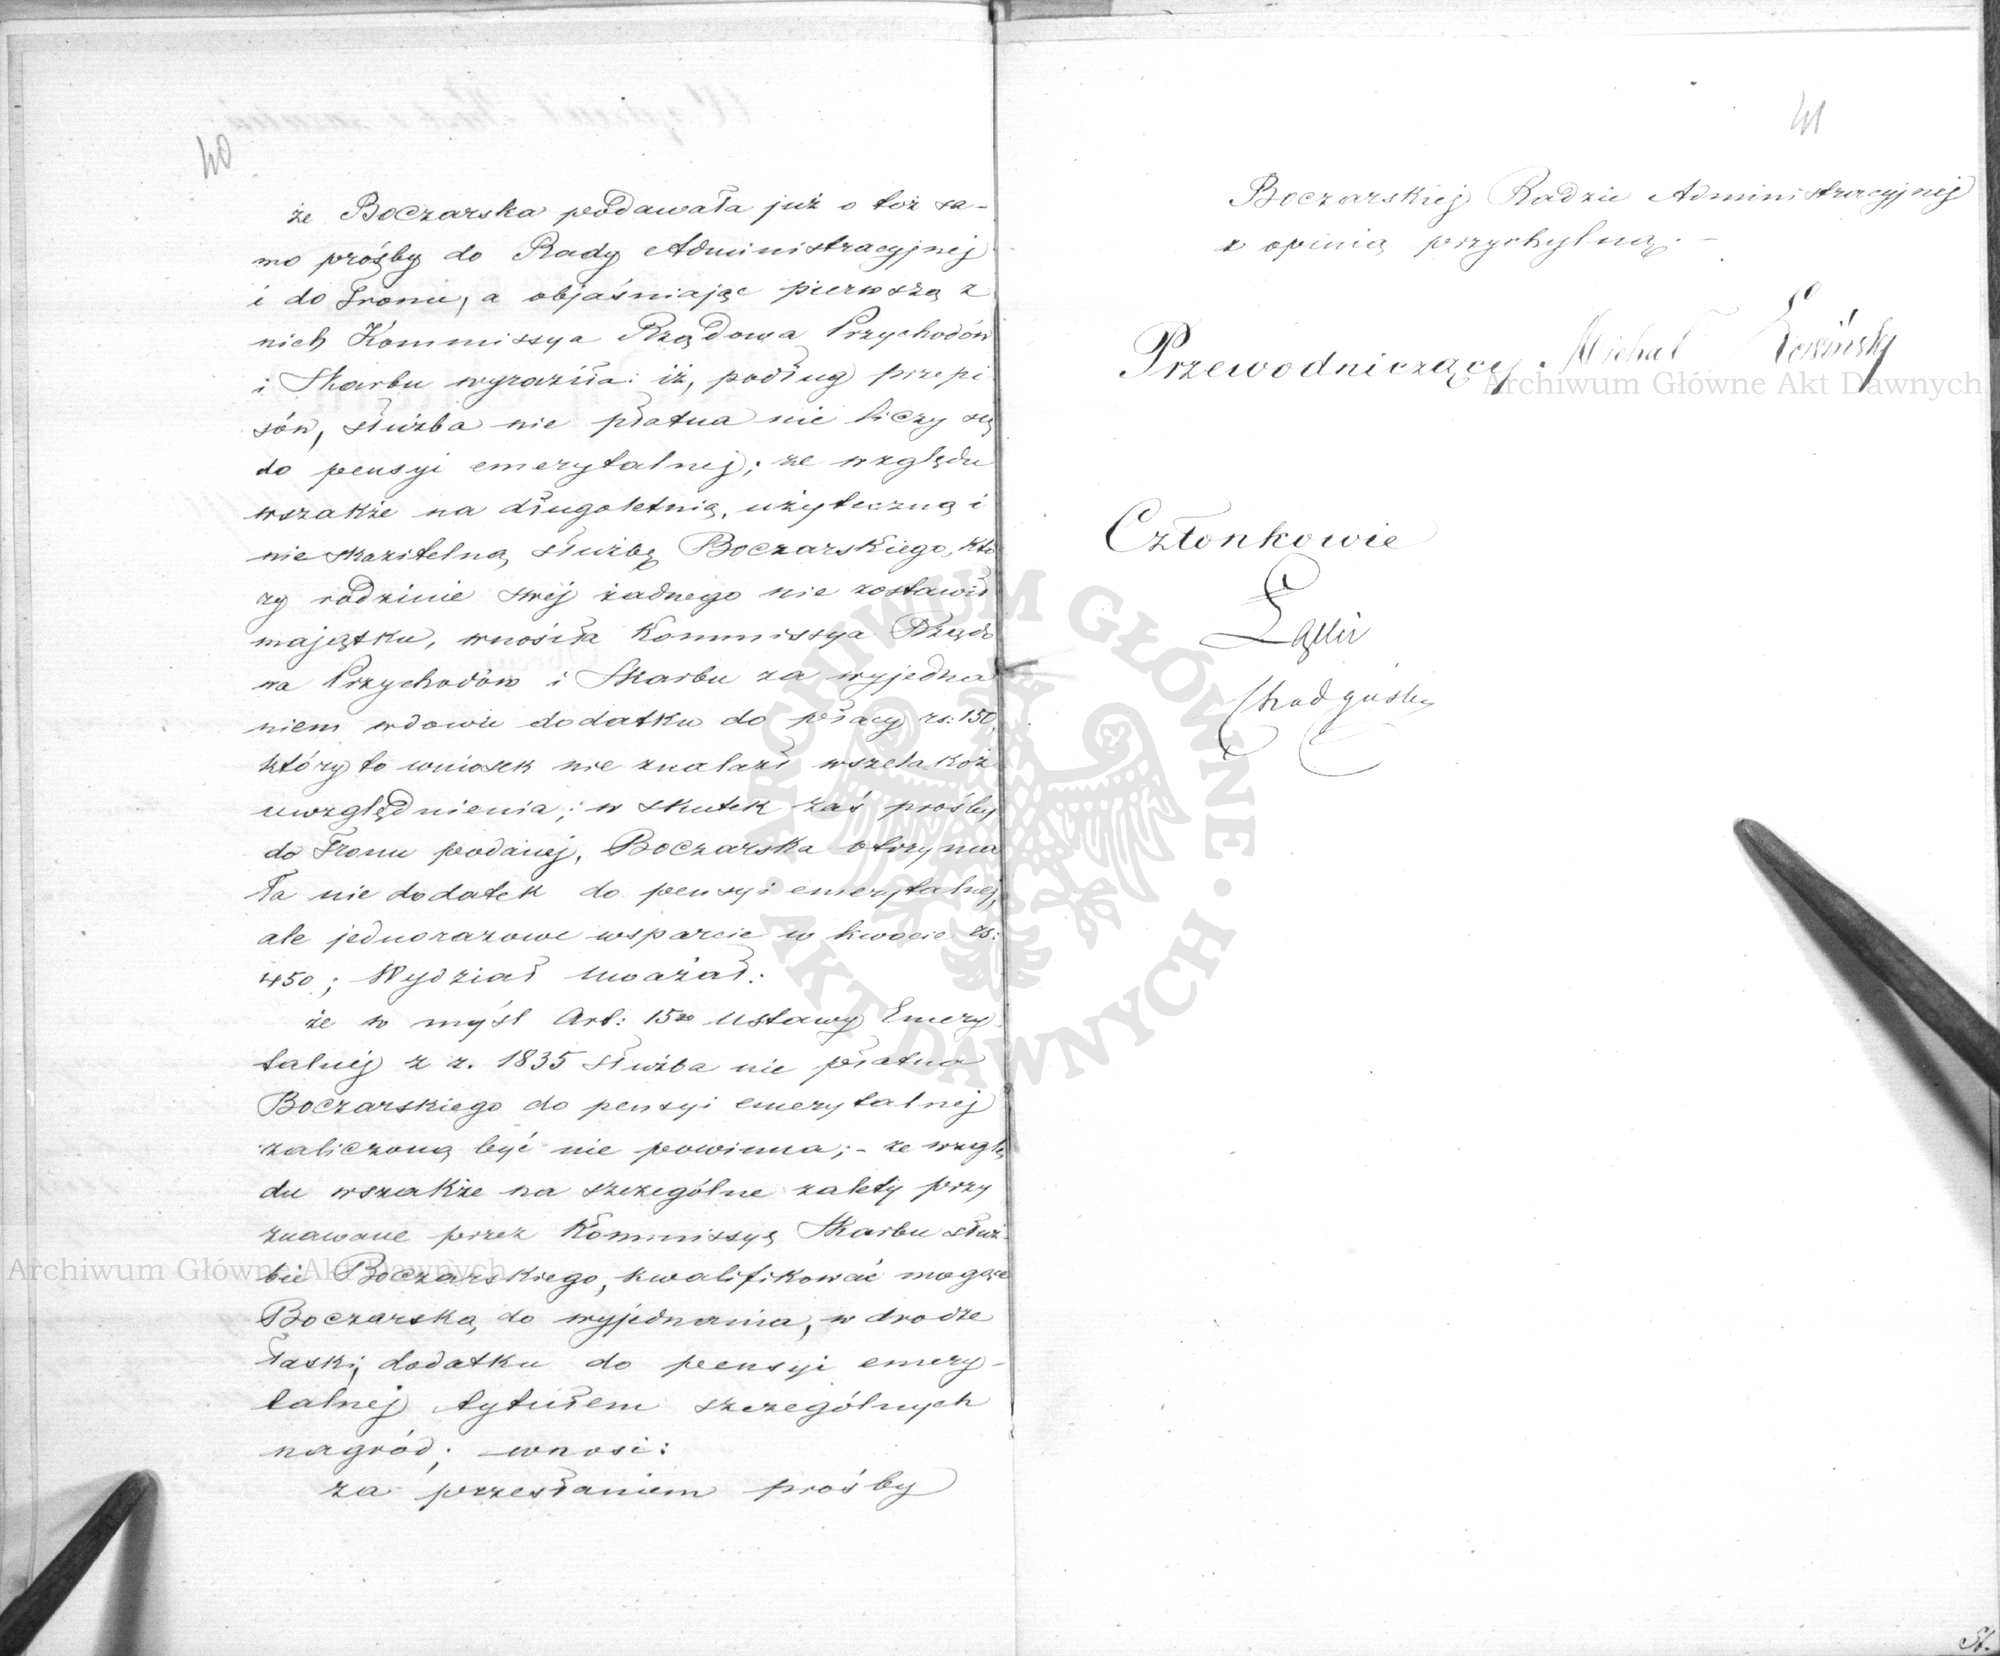 40
że Boczarska podawała już o toż sa-
mo prośby do Rady Administracyjnej
i do Tronu, a objaśniając pierwszą z
nich Kommissya Rządowa Przychodów
i Skarbu wyraziła: iż, podług przepi
sów, służba nie płatna nie liczy się
do pensyi emerytalnej; ze względu
wszakże na długoletnią, użyteczną i
nieskazitelną służbę Boczarskiego, któ
ry rodzinie swej żadnego nie zostawił
majątku, wnosiła Kommissya Rządo
wa Przychodów i Skarbu za wyjedna
niem wdowie dodatku do płacy rs: 150,
który to wniosek nie znalazł wszelakoż
uwzględnienia; w skutek zaś prośby
do Tronu podanej, Boczarska otrzyma
ła nie dodatek do pensyi emerytalnej,
ale jednorazowe wsparcie w kwocie rs:
450; Wydział uważał:
że w myśl Art: 15go Ustawy Emery
talnej z r. 1835 służba nie płatna
Boczarskiego do pensyi emerytalnej
zaliczoną być nie powinna; - ze wzglę
du wszakże na szczególne zalety przy
znawane przez Kommissyą Skarbu służ-
bie Boczarskiego, kwalifikować mogące
Boczarską do wyjednania, w drodze
łaski, dodatku do pensyi emery-
talnej tytułem szczególnych
nagród; wnosi:
za przesłaniem prośby
41
Boczarskiej Radzie Administracyjnej
z opinią przychylną. -
Przewodniczący. Michał
Członkowie
St.
Archiwum Główne Akt Dawnych
Archiwum Główne Akt Dawnych
ARCHIWUM GŁÓWNE · AKT DAWNYCH ·